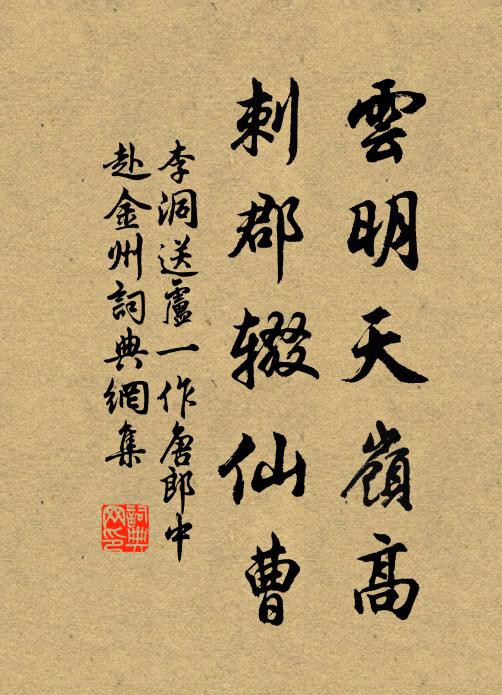 雲明天嶺高
刺郡辍仙曹
李洞送盧一作唐郎中
赴金州詞典網集
詞典網印